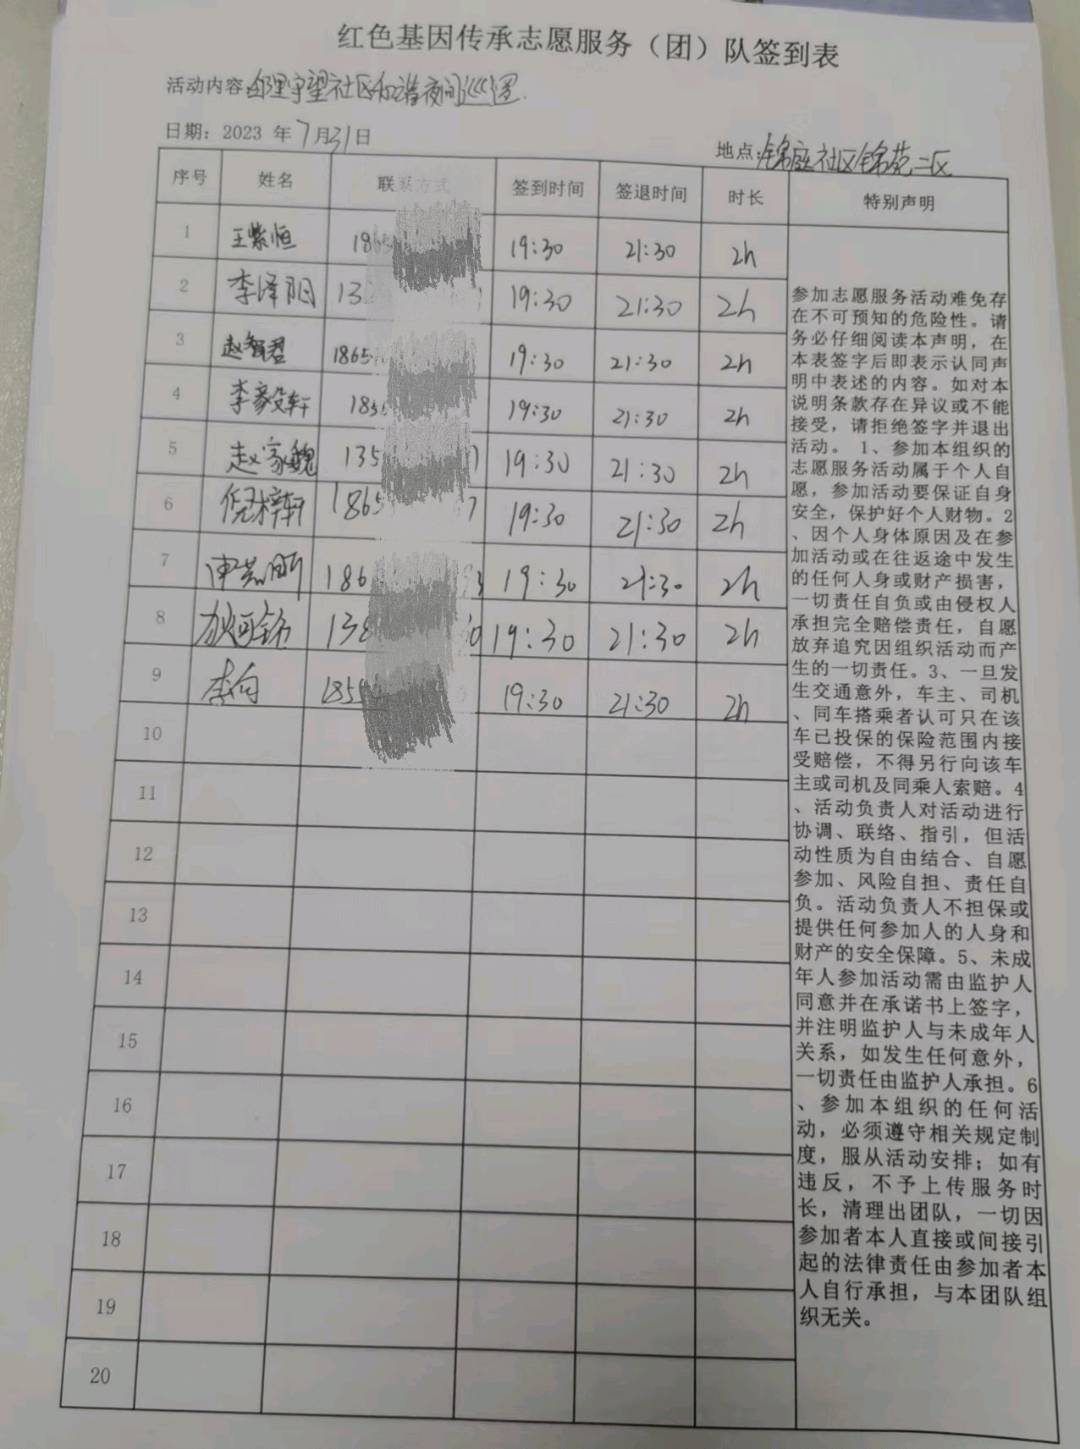 红色基因传承志愿服务（团）队签到表
活动内容:邻里守望社区和谐夜间巡逻
日期：2023 年7月31日
地点:锦庭社区锦苑二区
序号 姓名 联系方式 签到时间 签退时间 时长 特别声明
1 王紫恒 1865 19:30 21:30 2h
2 李泽明 13 19:30 21:30 2h
3 赵智君 1865 19:30 21:30 2h
4 李豪轩 185 19:30 21:30 2h
5 赵家魏 135 19:30 21:30 2h
6 倪梓轩 1865 7 19:30 21:30 2h
7 186 3 19:30 21:30 2h
8 138 0 19:30 21:30 2h
9 李向 1855 19:30 21:30 2h
10
11
12
13
14
15
16
17
18
19
20
参加志愿服务活动难免存
在不可预知的危险性。请
务必仔细阅读本声明，在
本表签字后即表示认同声
明中表述的内容。如对本
说明条款存在异议或不能
接受，请拒绝签字并退出
活动。 1、参加本组织的
志愿服务活动属于个人自
愿，参加活动要保证自身
安全，保护好个人财物。2
、因个人身体原因及在参
加活动或在往返途中发生
的任何人身或财产损害，
一切责任自负或由侵权人
承担完全赔偿责任，自愿
放弃追究因组织活动而产
生的一切责任。3、一旦发
生交通意外，车主、司机
、同车搭乘者认可只在该
车已投保的保险范围内接
受赔偿，不得另行向该车
主或司机及同乘人索赔。4
、活动负责人对活动进行
协调、联络、指引，但活
动性质为自由结合、自愿
参加、风险自担、责任自
负。活动负责人不担保或
提供任何参加人的人身和
财产的安全保障。5、未成
年人参加活动需由监护人
同意并在承诺书上签字，
并注明监护人与未成年人
关系，如发生任何意外，
一切责任由监护人承担。6
、参加本组织的任何活
动，必须遵守相关规定制
度，服从活动安排；如有
违反，不予上传服务时
长，清理出团队，一切因
参加者本人直接或间接引
起的法律责任由参加者本
人自行承担，与本团队组
织无关。